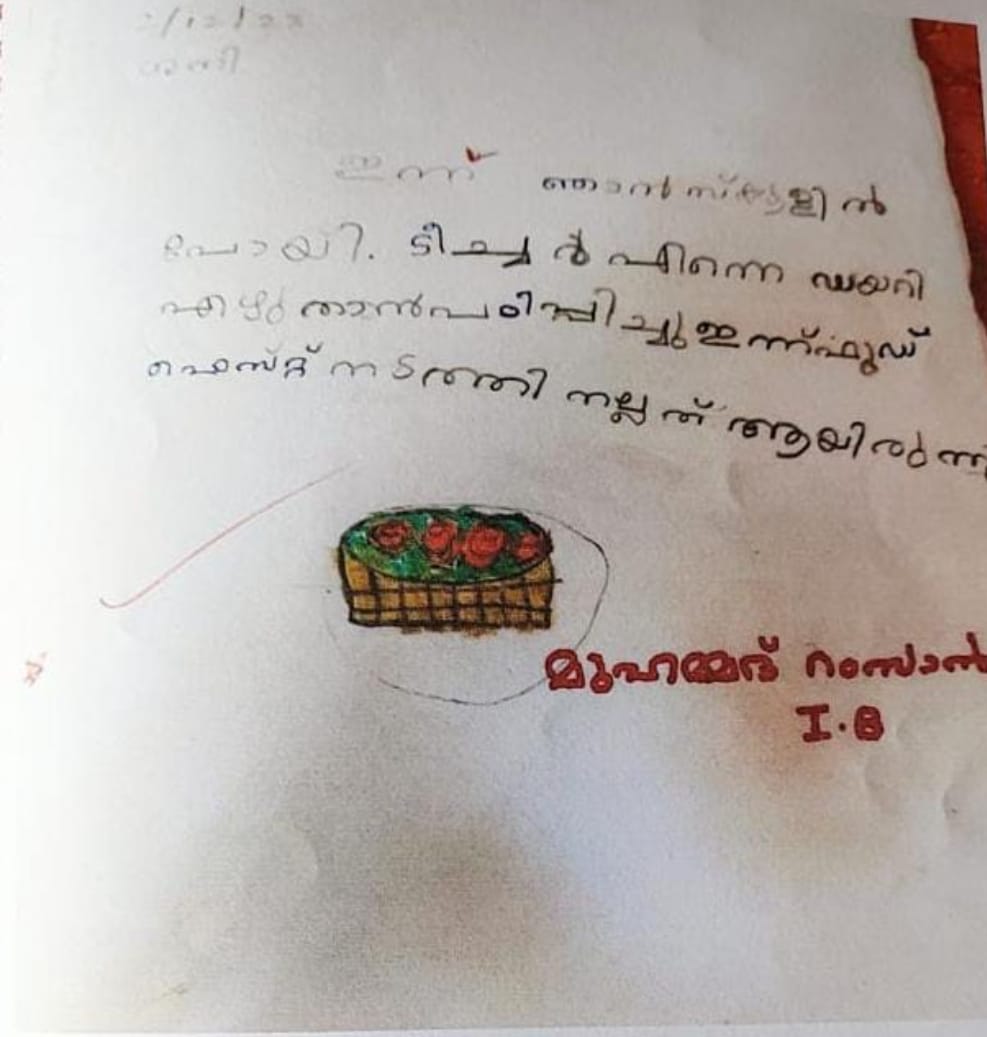 2/12/23
ശനി
ഇന്ന് ഞാൻ സ്കൂളിൽ
പോയി. ടീച്ചർ എന്നെ ഡയറി
എഴുതാൻ പഠിപ്പിച്ചു ഇന്ന് ഫുഡ്
ഫെസ്റ്റ് നടത്തി നല്ലത് ആയിരുന്നു
മുഹമ്മദ് റംസാൻ
I.B